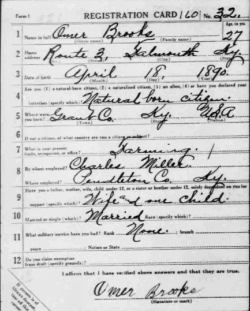 Form 1 REGISTRATION CARD 160 No. 32
1 Name in full Omer Brooks Age, in yrs. 27
(Given name) (Family name)
2 Home address Route 3, Falmouth Ky.
3 Date of birth April 18, 1890.
(Month) (Day) (Year)
4 Are you (1) a natural-born citizen, (2) a naturalized citizen, (3) an alien, (4) or have you declared your
intention (specify which)? Natural born citizen
5 Where were you born? Grant Co. Ky. USA
6 If not a citizen, of what country are you a citizen or subject?
7 What is your present trade, occupation, or office? Farming.
8 By whom employed? Charles Miller
Where employed? Pendleton Co. Ky.
9 Have you a father, mother, wife, child under 12, or a sister or brother under 12, solely dependent on you for
support (specify which)? Wife and one child.
10 Married or single (which)? Married Race (specify which)?
11 What military service have you had? Rank None branch
years Nation or State
12 Do you claim exemption from draft (specify grounds)?
I affirm that I have verified above answers and that they are true:
Omer Brooks
(Signature or mark)